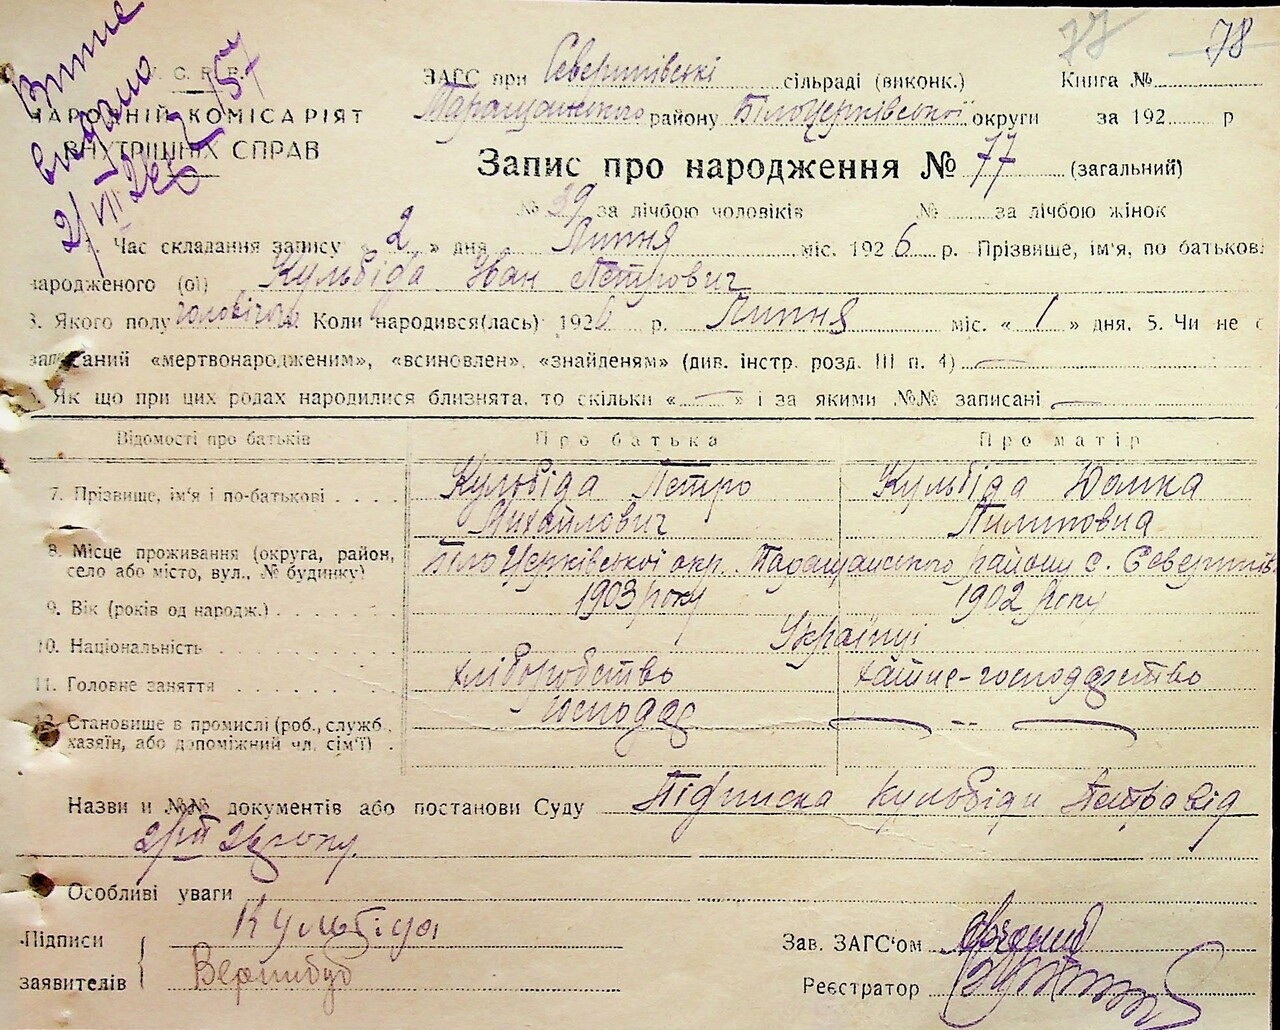 77 78
Витяг видано 2/VII 26 р. 57
У. С. Р. Р.
НАРОДНІЙ КОМІСАРІЯТ
ВНУТРІШНІХ СПРАВ
ЗАГС при сільраді (виконк.) Книга №
Таращанского району Білоцерківської округи за 192 р
Запис про народження № 77 (загальний)
№ 39 за лічбою чоловіків № за лічбою жінок
1. Час складання запису « 2 » дня Липня міс. 1926 р. Прізвище, ім'я, по батькові
народженого (ої) Кульбіда Іван Петрович
3. Якого полу чоловічого Коли народився(лась) 1926 р. Липня міс. « 1 » дня. 5. Чи не є
записаний «мертвонародженим», «всиновлен», «знайденям» (див. інстр. розд. III п. 4) —
Як що при цих родах народилися близнята, то скільки « — » і за якими №№ записані —
Відомості про батьків Про батька Про матір
7. Прізвище, ім'я і по-батькові Кульбіда Петро Михайлович Кульбіда Домка Пилиповна
8. Місце проживання (округа, район, село або місто, вул., № будинку) Білоцерківської окр. Таращанского району с.
9. Вік (років од народж.) 1903 року 1902 року
10. Національність Українці
11. Головне заняття хліборобство хатне-господарство
12. Становище в промислі (роб., службі, хазяїн, або допоміжний чл. сім'ї) господар — -- —
Назви и №№ документів або постанови Суду Підписка Кульбіди Петра від
2/VII 26 року.
Особливі уваги
Підписи заявителів Кульбіда
Зав. ЗАГС'ом
Реєстратор